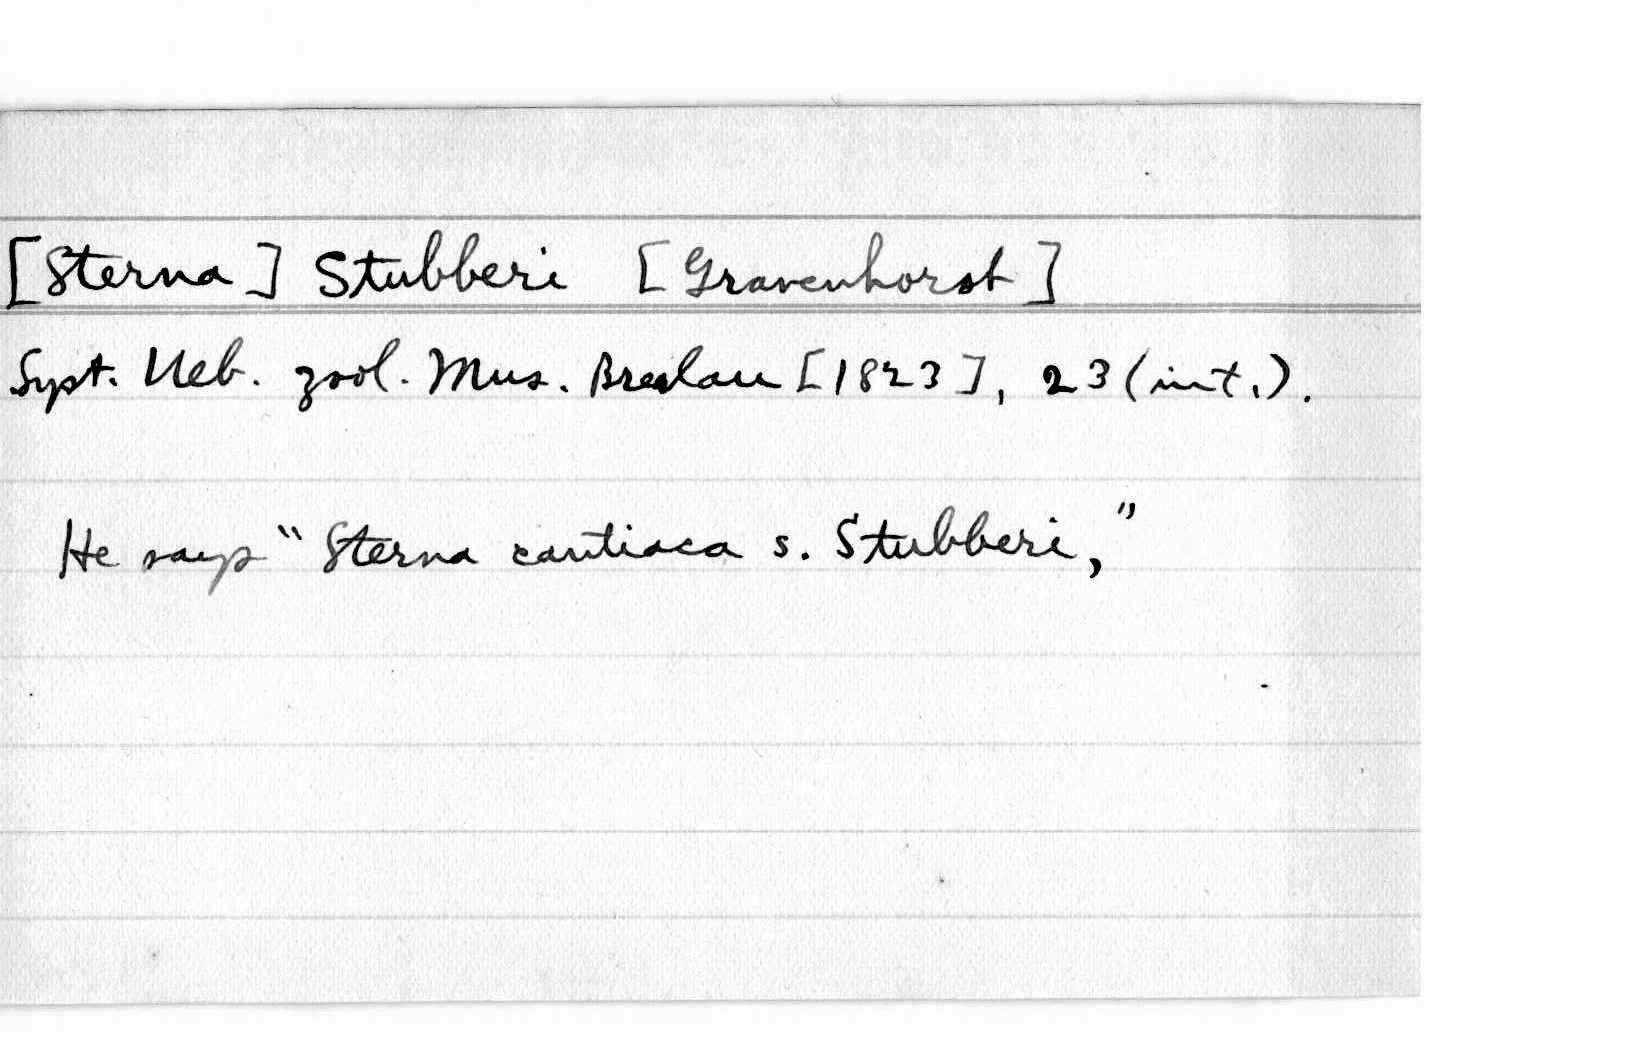 [Sterna] Stubberi [Gravenhorst]
Syst. Ueb. zool. Mus. Breslau [1823], 23 (int.).
He says "Sterna cantiaca s. Stubberi,"